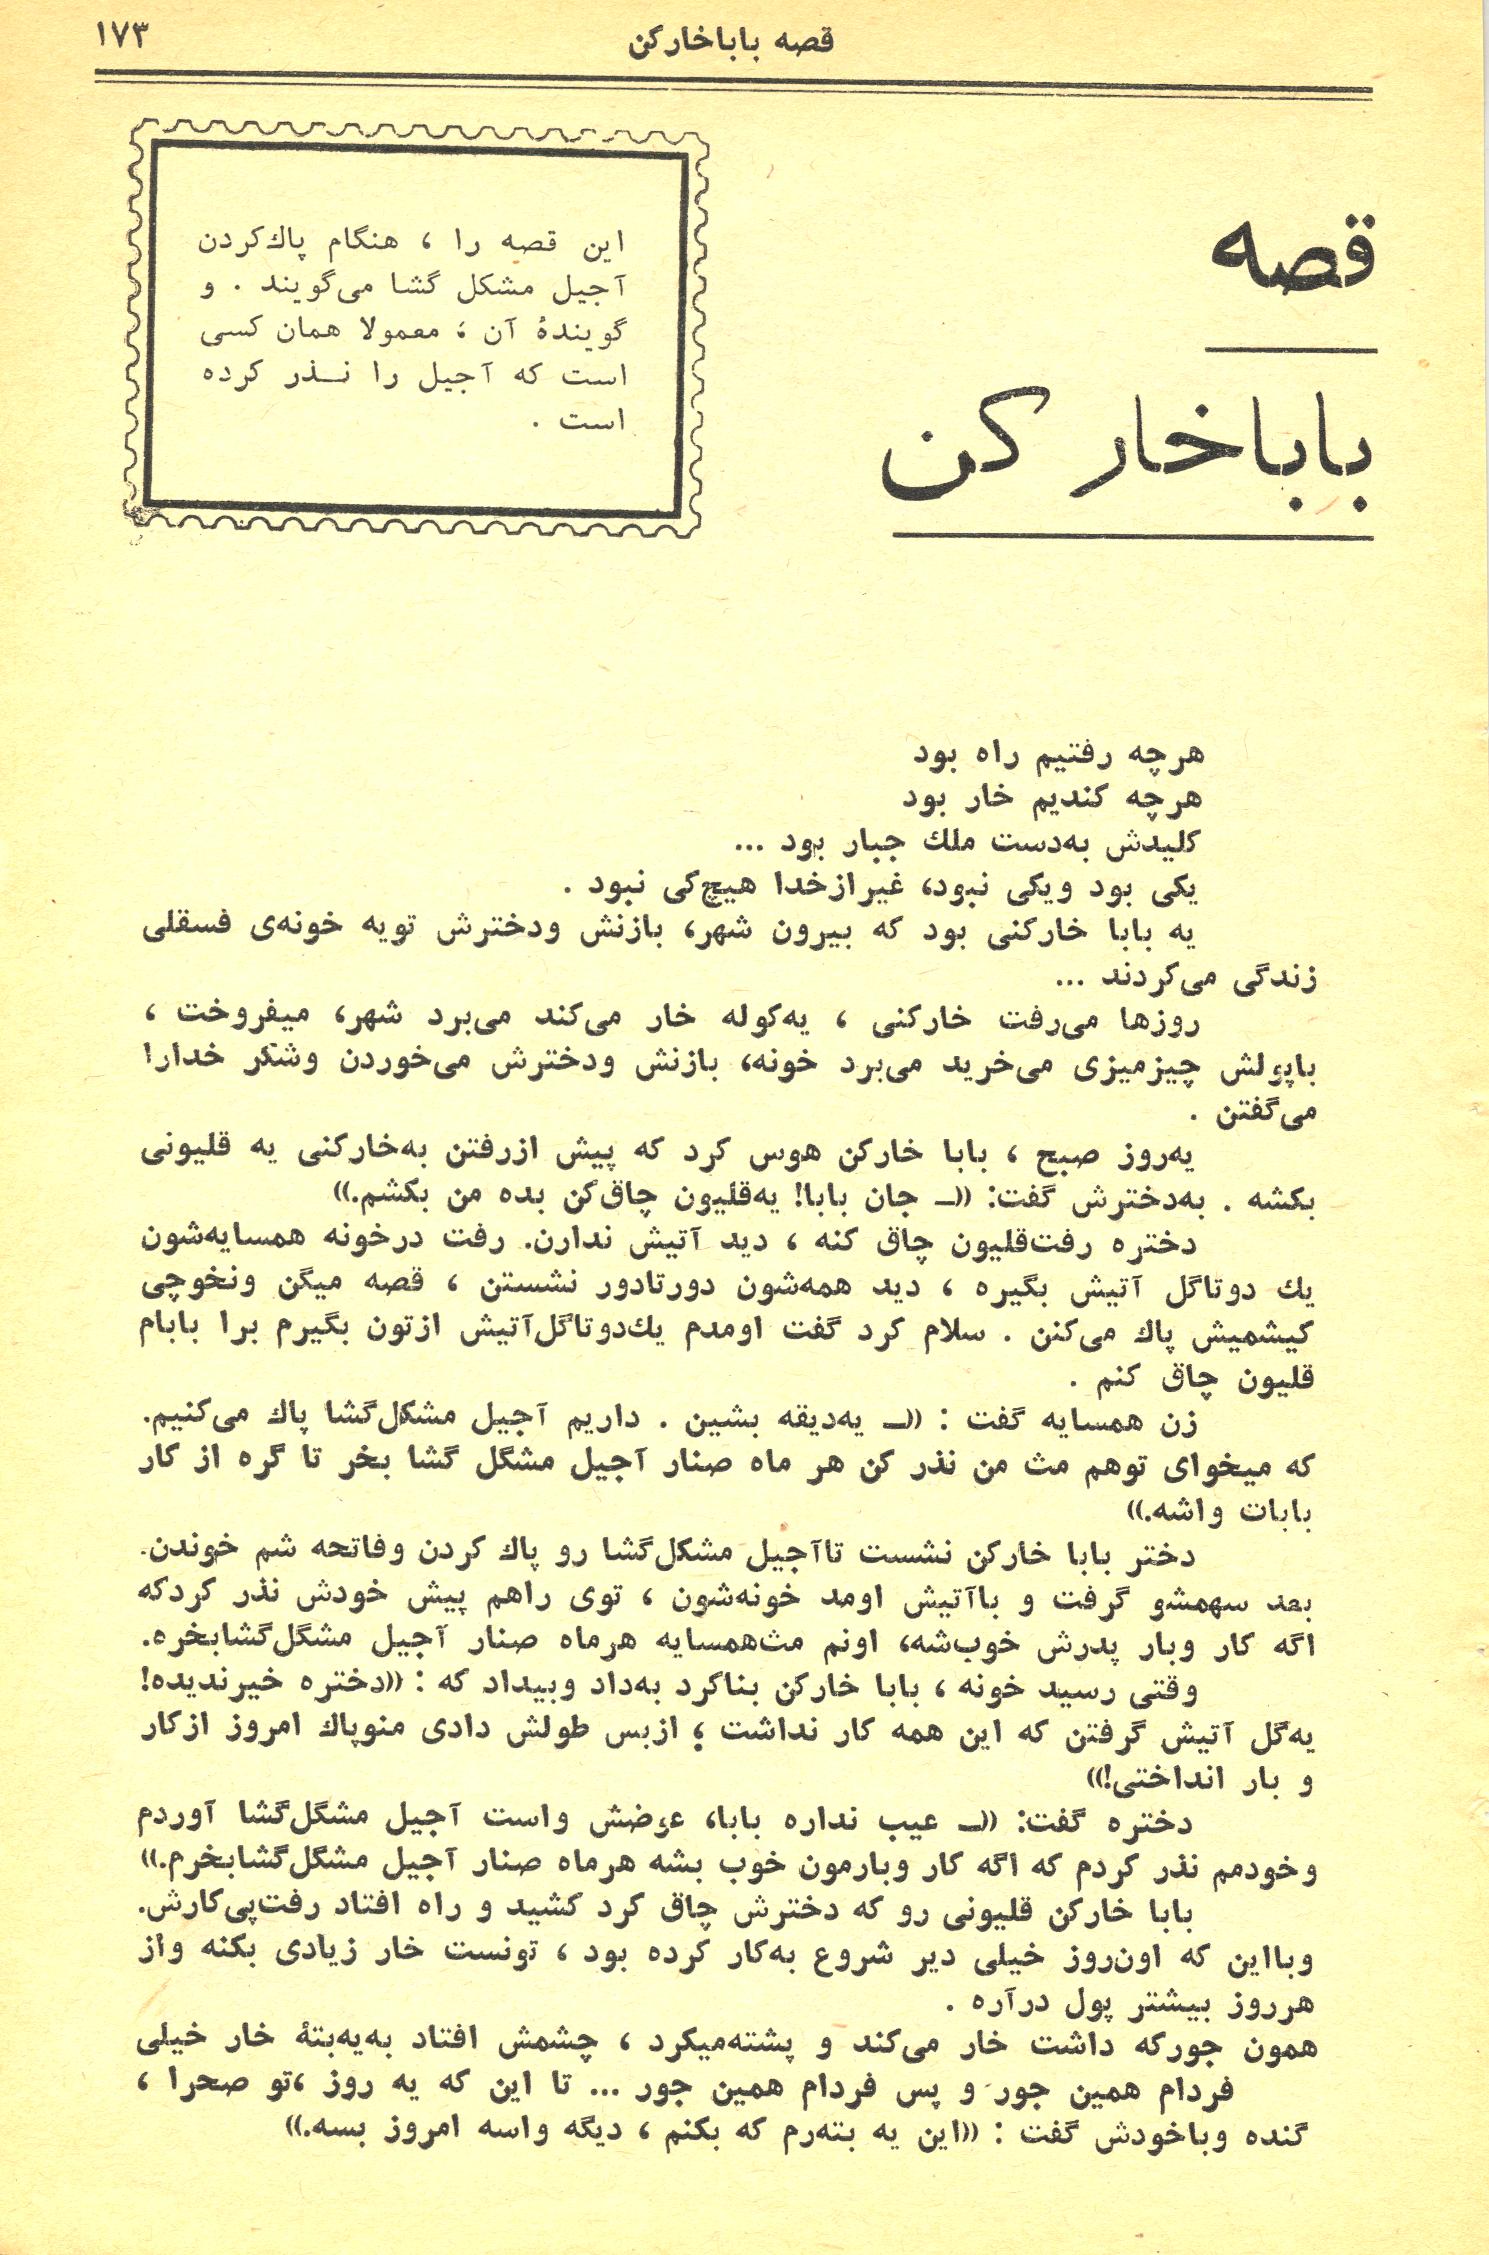 ۱۷۳
قصه باباخارکن
قصه
باباخار کن
این قصه را ، هنگام پاك‌کردن
آجیل مشکل گشا می‌گویند . و
گویندهٔ آن ، معمولا همان کسی
است که آجیل را نــذر کرده
است .
هرچه رفتیم راه بود
هرچه کندیم خار بود
کلیدش به‌دست ملك جبار بود ...
یکی بود ویکی نبود، غیرازخدا هیچ‌کی نبود .
یه بابا خارکنی بود که بیرون شهر، بازنش ودخترش تویه خونه‌ی فسقلی
زندگی می‌کردند ...
روزها می‌رفت خارکنی ، یه‌کوله خار می‌کند می‌برد شهر، میفروخت ،
باپولش چیزمیزی می‌خرید می‌برد خونه، بازنش ودخترش می‌خوردن وشکر خدارا
می‌گفتن .
یه‌روز صبح ، بابا خارکن هوس کرد که پیش ازرفتن به‌خارکنی یه قلیونی
بکشه . به‌دخترش گفت: ((ــ جان بابا! یه‌قلیون چاق‌کن بده من بکشم.))
دختره رفت‌قلیون چاق کنه ، دید آتیش ندارن. رفت درخونه همسایه‌شون
یك دوتاگل آتیش بگیره ، دید همه‌شون دورتادور نشستن ، قصه میگن ونخوچی
کیشمیش پاك می‌کنن . سلام کرد گفت اومدم یك‌دوتاگل‌آتیش ازتون بگیرم برا بابام
قلیون چاق کنم .
زن همسایه گفت : ((ــ یه‌دیقه بشین . داریم آجیل مشکل‌گشا پاك می‌کنیم.
که میخوای توهم مث من نذر کن هر ماه صنار آجیل مشگل گشا بخر تا گره از کار
بابات واشه.))
دختر بابا خارکن نشست تاآجیل مشکل‌گشا رو پاك کردن وفاتحه شم خوندن.
بعد سهمشو گرفت و باآتیش اومد خونه‌شون ، توی راهم پیش خودش نذر کردکه
اگه کار وبار پدرش خوب‌شه، اونم مث‌همسایه هرماه صنار آجیل مشگل‌گشابخره.
وقتی رسید خونه ، بابا خارکن بناکرد به‌داد وبیداد که : ((دختره خیرندیده!
یه‌گل آتیش گرفتن که این همه کار نداشت ؛ ازبس طولش دادی منوپاك امروز ازکار
و بار انداختی!))
دختره گفت: ((ــ عیب نداره بابا، عوضش واست آجیل مشگل‌گشا آوردم
وخودمم نذر کردم که اگه کار وبارمون خوب بشه هرماه صنار آجیل مشگل‌گشابخرم.))
بابا خارکن قلیونی رو که دخترش چاق کرد کشید و راه افتاد رفت‌پی‌کارش.
وبااین که اون‌روز خیلی دیر شروع به‌کار کرده بود ، تونست خار زیادی بکنه واز
هرروز بیشتر پول درآره .
همون جورکه داشت خار می‌کند و پشته‌میکرد ، چشمش افتاد به‌یه‌بتهٔ خار خیلی
فردام همین جور و پس فردام همین جور ... تا این که یه روز ،تو صحرا ،
گنده وباخودش گفت : ((این یه بته‌رم که بکنم ، دیگه واسه امروز بسه.))